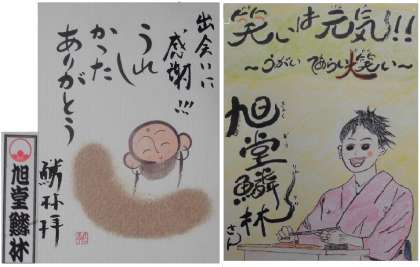 出会いに
感謝!!!
うれし
かった
ありがとう
鱗林拝
旭堂鱗林
笑いは元気!!
～うがい てあらい 大笑い～
旭堂鱗林さん